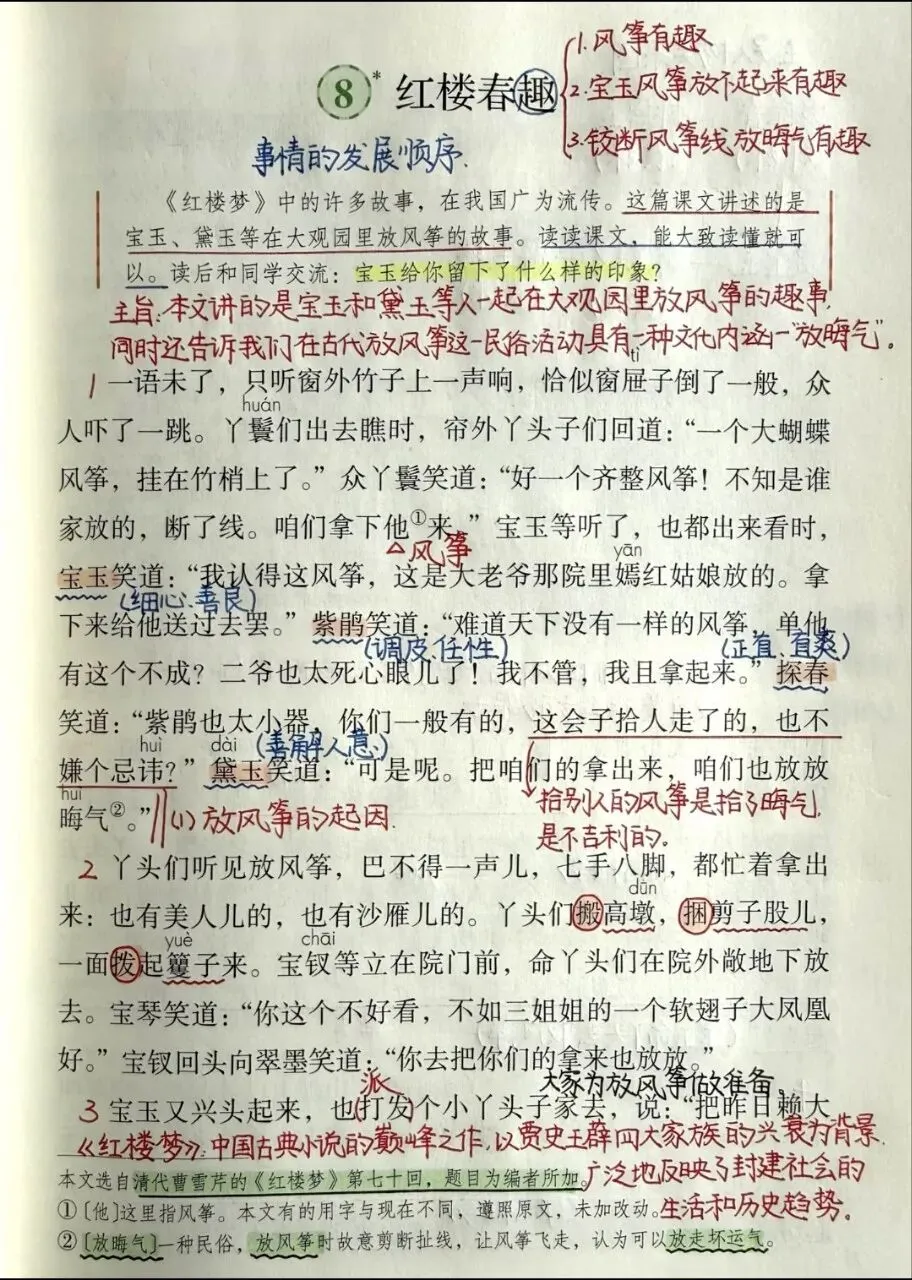 1.风筝有趣
8* 红楼春趣
2.宝玉风筝放不起来有趣
3.铰断风筝线放晦气有趣
事情的发展顺序.
《红楼梦》中的许多故事，在我国广为流传。这篇课文讲述的是
宝玉、黛玉等在大观园里放风筝的故事。读读课文，能大致读懂就可
以。读后和同学交流：宝玉给你留下了什么样的印象？
主旨:本文讲的是宝玉和黛玉等人一起在大观园里放风筝的趣事,
同时还告诉我们在古代放风筝这一民俗活动具有一种文化内涵—“放晦气”。
tì
1 一语未了，只听窗外竹子上一声响，恰似窗屉子倒了一般，众
huán
人吓了一跳。丫鬟们出去瞧时，帘外丫头子们回道：“一个大蝴蝶
风筝，挂在竹梢上了。”众丫鬟笑道：“好一个齐整风筝！不知是谁
家放的，断了线。咱们拿下他①来。”宝玉等听了，也都出来看时，
△风筝
yān
宝玉笑道：“我认得这风筝，这是大老爷那院里嫣红姑娘放的。拿
(细心、善良)
下来给他送过去罢。”紫鹃笑道：“难道天下没有一样的风筝，单他
(调皮、任性) (正直、直爽)
有这个不成？二爷也太死心眼儿了！我不管，我且拿起来。”探春
笑道：“紫鹃也太小器，你们一般有的，这会子拾人走了的，也不
huì dài (善解人意)
嫌个忌讳？”黛玉笑道：“可是呢。把咱们的拿出来，咱们也放放
huì 拾别人的风筝是拾了晦气,
晦气②。” (1)放风筝的起因.
是不吉利的。
2 丫头们听见放风筝，巴不得一声儿，七手八脚，都忙着拿出
来：也有美人儿的，也有沙雁儿的。丫头们搬高墩，捆剪子股儿，
dūn
yuè chāi
一面拨起籰子来。宝钗等立在院门前，命丫头们在院外敞地下放
去。宝琴笑道：“你这个不好看，不如三姐姐的一个软翅子大凤凰
好。”宝钗回头向翠墨笑道：“你去把你们的拿来也放放。”
派 大家为放风筝做准备.
3 宝玉又兴头起来，也(打发)个小丫头子家去，说：“把昨日赖大
《红楼梦》:中国古典小说的巅峰之作,以贾史王薛四大家族的兴衰为背景,
本文选自清代曹雪芹的《红楼梦》第七十回，题目为编者所加。广泛地反映了封建社会的
①〔他〕这里指风筝。本文有的用字与现在不同，遵照原文，未加改动。生活和历史趋势。
②〔放晦气〕一种民俗，放风筝时故意剪断扯线，让风筝飞走，认为可以放走坏运气。